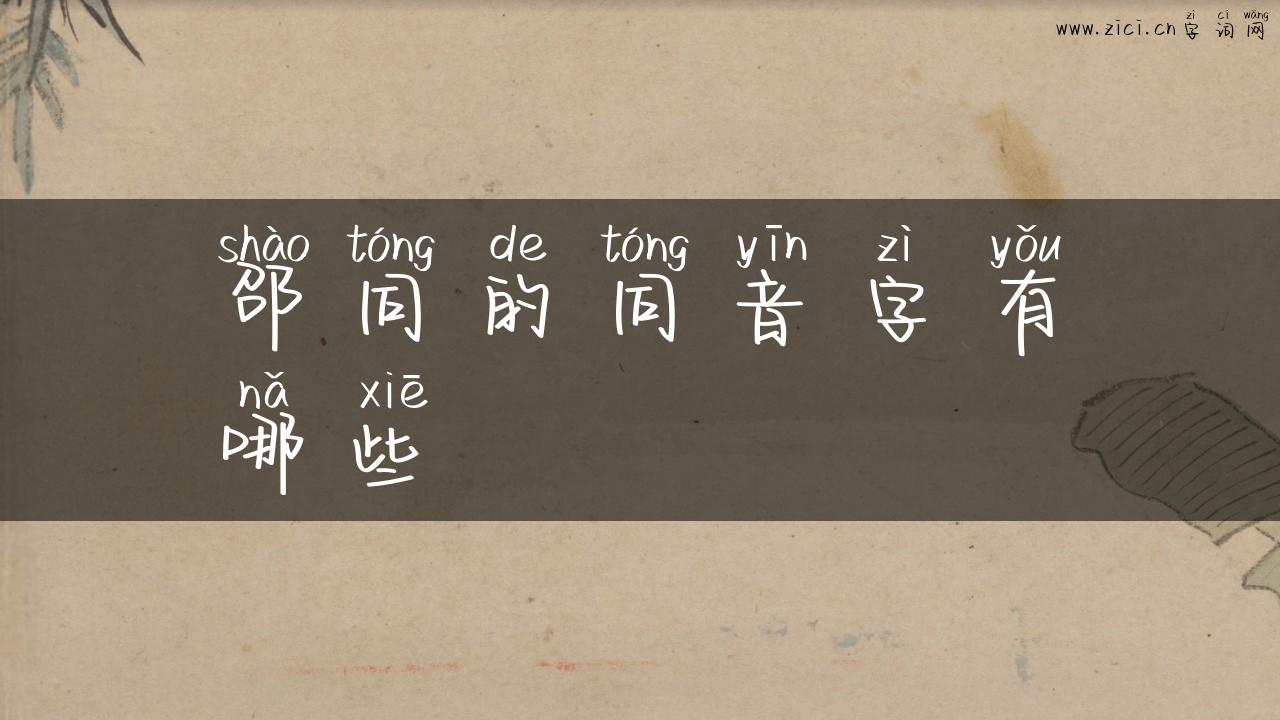 zì cí wǎng
www.zici.cn 字词网
shào tóng de tóng yīn zì yǒu
邵同的同音字有
nǎ xiē
哪些